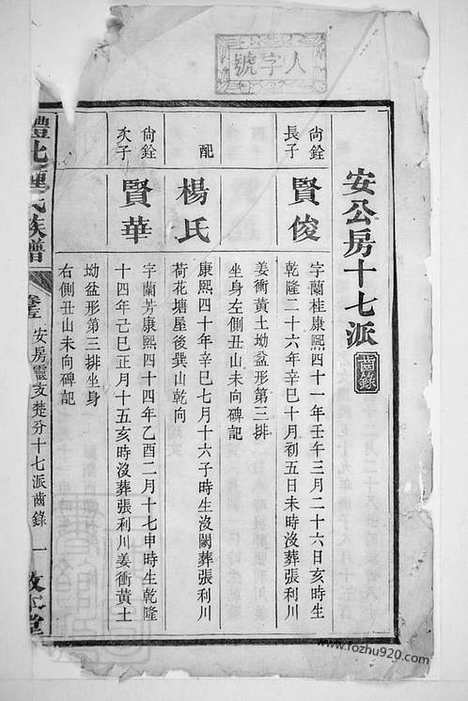 人字號
安公房十七派
齒錄
尙銓長子
賢俊
字蘭桂康熙四十一年壬年三月二十六日亥時生
乾隆二十六年辛巳十月初五日未時沒葬張利川
姜衝黃土坳盆形第三排
坐身左側丑山未向碑記
配
楊氏
康熙四十年辛巳七月十六子時生沒闕葬張利川
荷花塘屋後巽山乾向
尙銓次子
賢華
字蘭芳康熙四十四年乙酉二月十七申時生乾隆
十四年己巳正月十五亥時沒葬張利川姜衝黃土
坳盆形第三排坐身
右側丑山未向碑記
氏族譜
安房靈支楚分十七派齒錄
一
www.fozhu920.com